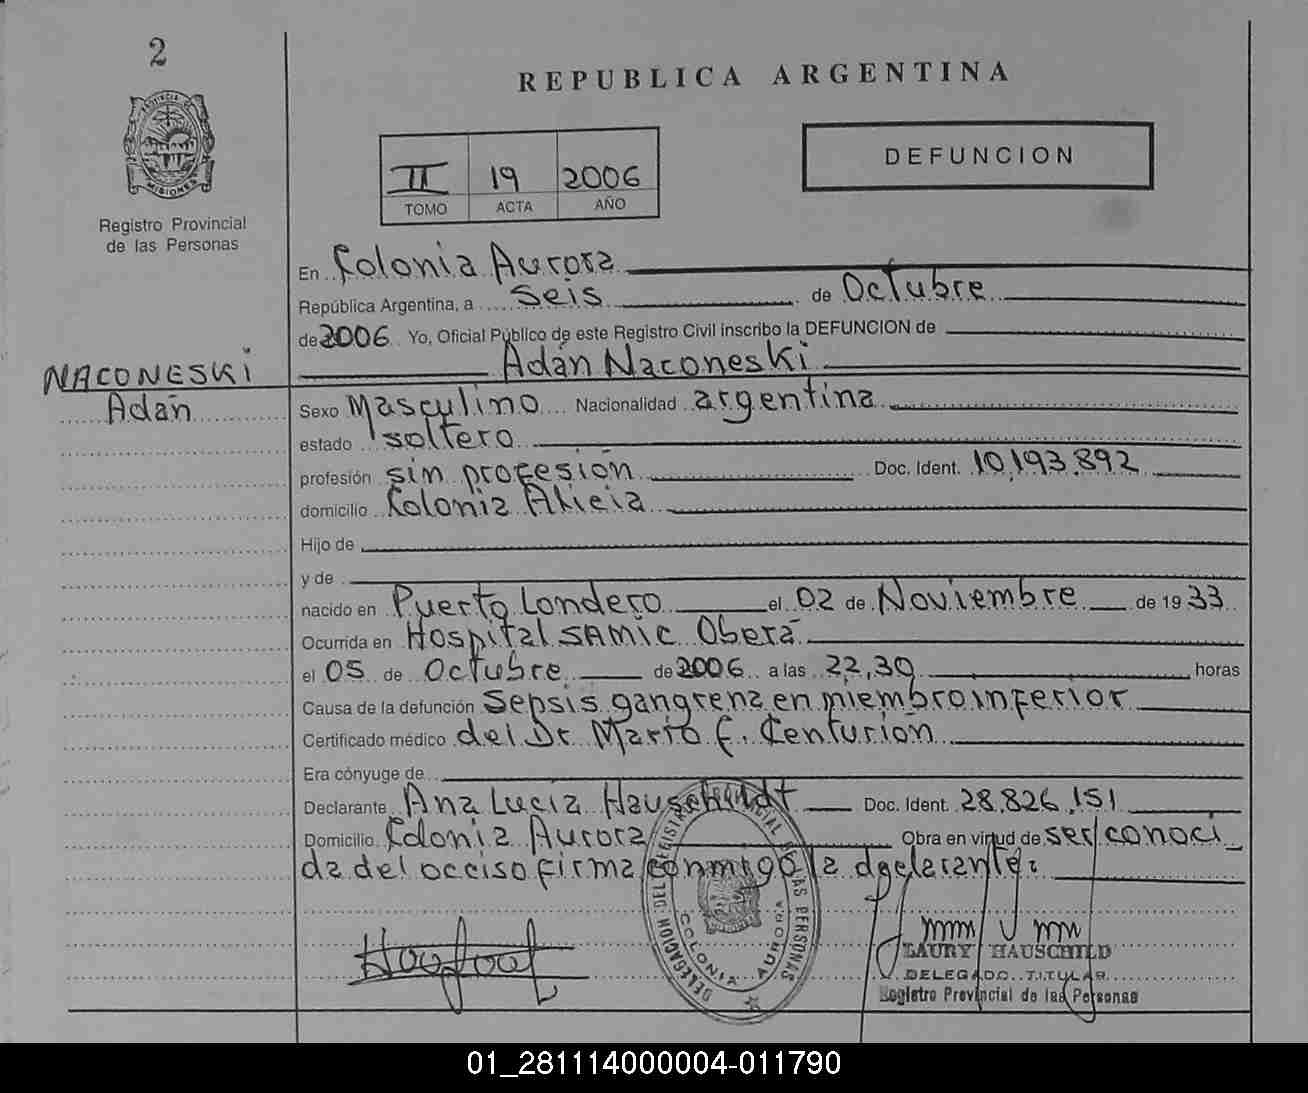 2
PROVINCIA DE
MISIONES
Registro Provincial
de las Personas
REPUBLICA ARGENTINA
II 19 2006
TOMO ACTA AÑO
DEFUNCION
En Colonia Aurora
República Argentina, a seis de Octubre
de 2006 Yo, Oficial Público de este Registro Civil inscribo la DEFUNCION de
Adán Naconeski
NACONESKI
Adán
Sexo Masculino Nacionalidad argentina
estado soltero
profesión sin profesión Doc. Ident. 10.193.892
domicilio Colonia Alicia
Hijo de
y de
nacido en Puerto Londero el 02 de Noviembre de 1933
Ocurrida en Hospital SAMIC Oberá
el 05 de Octubre de 2006 a las 22,30 horas
Causa de la defunción Sepsis gangrena en miembro inferior
Certificado médico del Dr. Mario F. Centurión
Era cónyuge de
Declarante Ana Lucia Hauschildt Doc. Ident. 28.826.151
Domicilio Colonia Aurora Obra en virtud de ser conoci
da del occiso firma conmigo la declarante:
DELEGACION DEL REGISTRO PROVINCIAL DE LAS PERSONAS
COLONIA AURORA
LAURY HAUSCHILD
DELEGADO TITULAR
Registro Provincial de las Personas
01_281114000004-011790